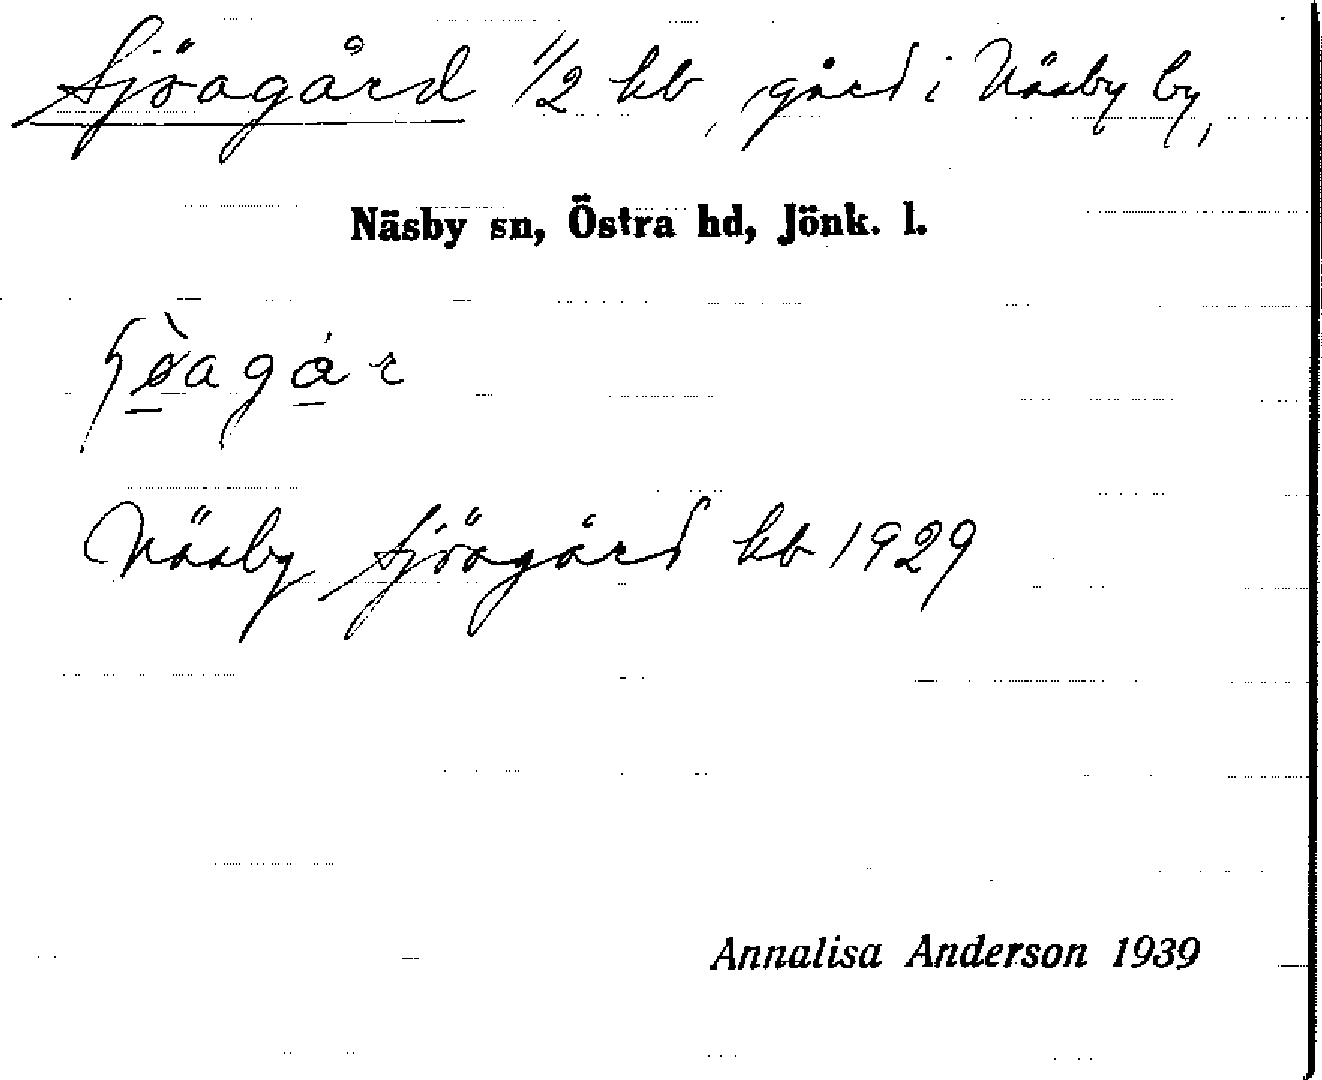 Sjöagård 1/2 kb, gård i Näsby by,
Näsby sn, Östra hd, Jönk. l.
Näsby Sjöagård kb 1929
Annalisa Anderson 1939